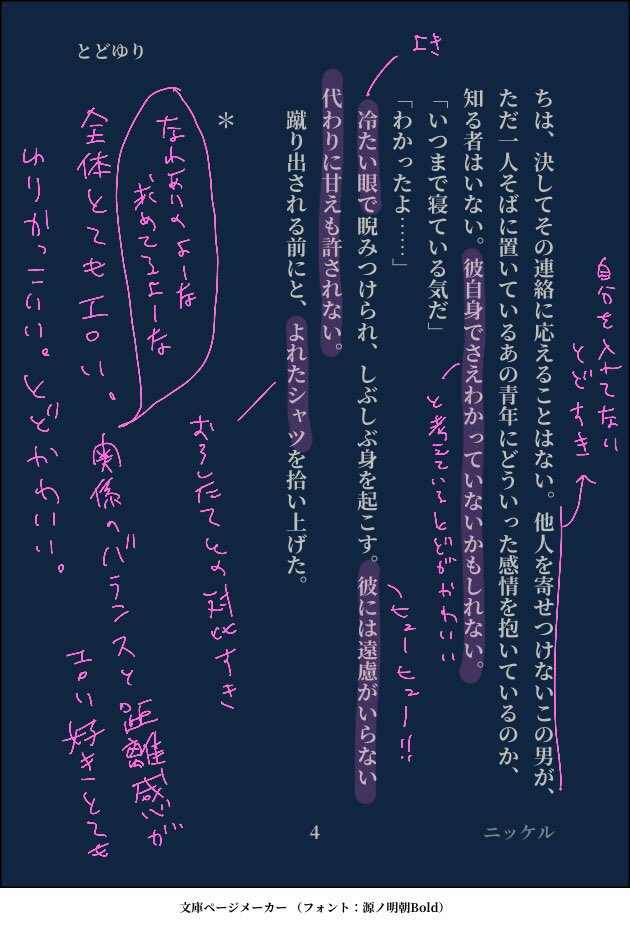 とどゆり
ちは、決してその連絡に応えることはない。他人を寄せつけないこの男が、
ただ一人そばに置いているあの青年にどういった感情を抱いているのか、
知る者はいない。彼自身でさえわかっていないかもしれない。
「いつまで寝ている気だ」
「わかったよ……」
冷たい眼で睨みつけられ、しぶしぶ身を起こす。彼には遠慮がいらない
代わりに甘えも許されない。
蹴り出される前にと、よれたシャツを拾い上げた。
＊
自分を入れてない
とどすき
と考えているとどがかわいい
よき
ヒューヒュー!!
おろしたてとの対比すき
なれあいのよーな
求めてるよーな
関係のバランスと距離感が
エロい好きとても
全体とてもエロい。
ゆりかっこいい。とどかわいい。
4
ニッケル
文庫ページメーカー（フォント：源ノ明朝Bold）